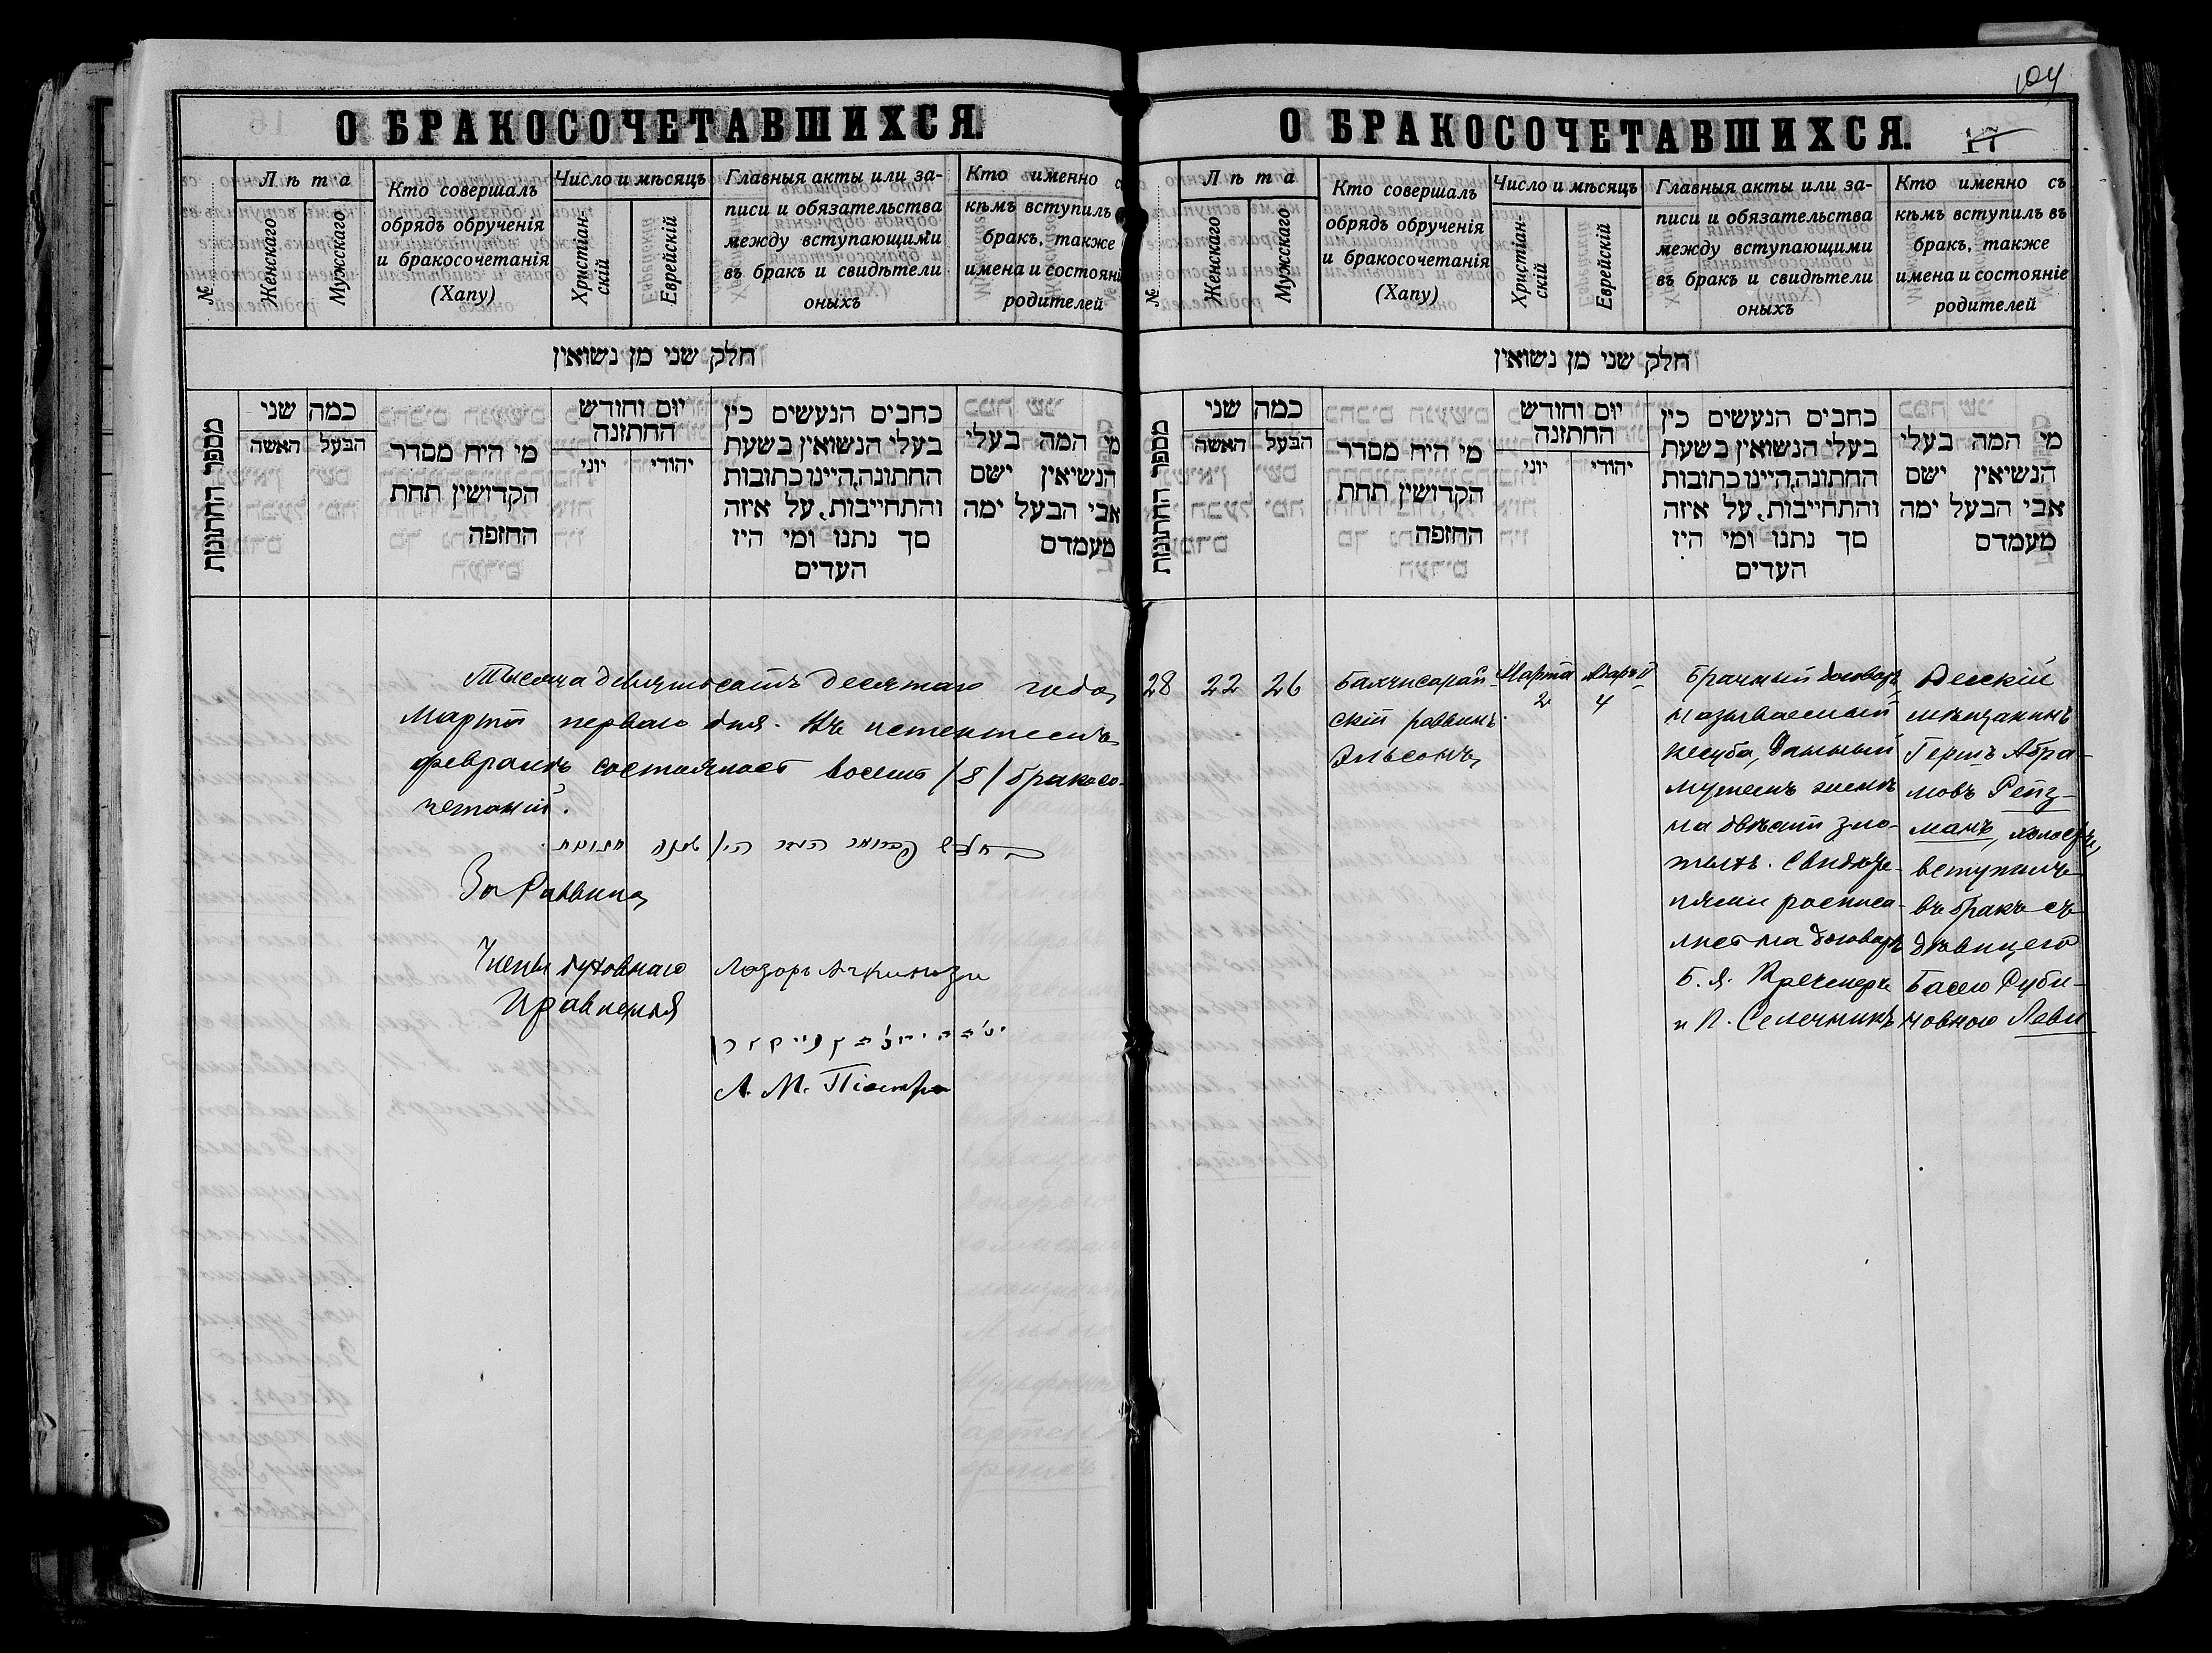 О БРАКОСОЧЕТАВШИХСЯ.
№
Лѣта
Женскаго
Мужскаго
Кто совершалъ
обрядъ обрученія
и бракосочетанія
(Хапу)
Число и мѣсяцъ
Христіан-
скій
Еврейскій
Главныя акты или за-
писи и обязательства
между вступающими
въ бракъ и свидѣтели
оныхъ
Кто именно с
кѣмъ вступилъ
бракъ, также
имена и состояні
родителей
חלק שני מן נשואין
מספר החתונות
כמה שני
האשה
הבעל
מי היה מסדר
הקדושין תחת
החופה
יום וחודש
החתונה
יוני
יהודי
כתבים הנעשים בין
בעלי הנשואין בשעת
החתונה, היינו כתובות
והתחייבות, על איזה
סך נתנו ומי היו
העדים
מי המה בעלי
הנשואין ושם
אבי הבעל ומה
מעמדם
Тысяча девятьсотъ десятаго года
Марта перваго дня. Въ истекшемъ
февралѣ состоялось восемь /8/ бракосо-
четаній.
За Раввина
Члены духовнаго
Правленія
Лазарь Ачкинази
А. М. Піастро
104
О БРАКОСОЧЕТАВШИХСЯ.
17
№
Лѣта
Женскаго
Мужскаго
Кто совершалъ
обрядъ обрученія
и бракосочетанія
(Хапу)
Число и мѣсяцъ
Христіан-
скій
Еврейскій
Главныя акты или за-
писи и обязательства
между вступающими
въ бракъ и свидѣтели
оныхъ
Кто именно съ
кѣмъ вступилъ въ
бракъ, также
имена и состояніе
родителей
חלק שני מן נשואין
מספר החתונות
כמה שני
האשה
הבעל
מי היה מסדר
הקדושין תחת
החופה
יום וחודש
החתונה
יוני
יהודי
כתבים הנעשים בין
בעלי הנשואין בשעת
החתונה, היינו כתובות
והתחייבות, על איזה
סך נתנו ומי היו
העדים
מי המה בעלי
הנשואין ושם
אבי הבעל ומה
מעמדם
28
22
26
Бахчисарай-
скій раввинъ
Эльсонъ
Марта
2
Адаръ II
4
Брачный договоръ,
называемый
кесуба, данный
мужемъ женѣ
на двѣсти зло-
тыхъ. Свидѣте-
лями росписа-
лись на договорѣ
Б. Я. Кречмеръ
и П. Селечникъ
мѣщанинъ
Герш Абра-
мовъ Рейз-
манъ, холостъ,
вступилъ
въ бракъ съ
дѣвицею
Басею Руби-
новною Леви